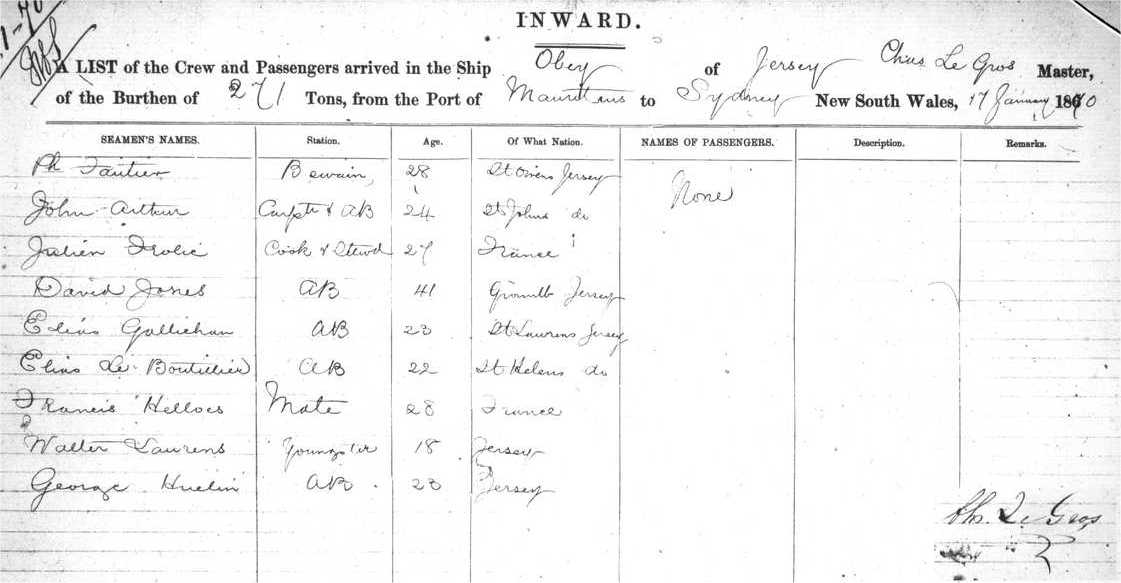 INWARD.
A LIST of the Crew and Passengers arrived in the Ship Obey of Jersey Chas Le Gros Master,
of the Burthen of 271 Tons, from the Port of Mauritius to Sydney New South Wales, 17 January 1870
SEAMEN'S NAMES. Station. Age. Of What Nation. NAMES OF PASSENGERS. Description. Remarks.
Ph Fautier 28 St Owens Jersey None
John Arthur Carptr & AB 24 St Johns do
Julien Frolic Cook & Stewd 27 France
David Jones AB 41 Jersey
Elias Gallichan AB 23 St Laurens Jersey
Elias Le Boutillier AB 22 St Helens do
Francis Helloes Mate 28 France
Walter Laurens Youngster 18 Jersey
George Huelin AB 23 Jersey
Chs. Le Gros